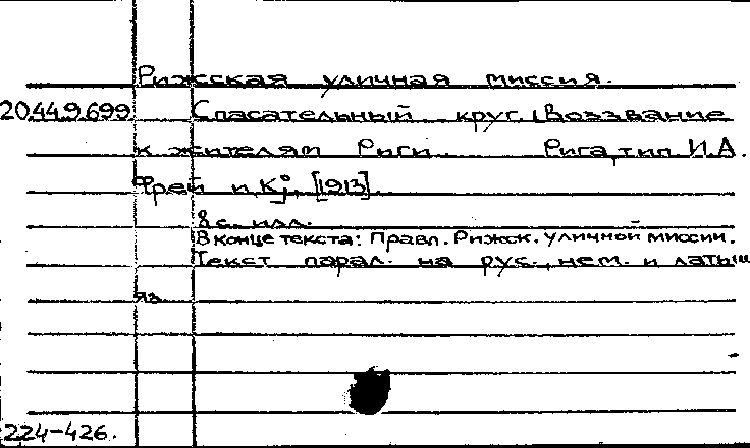 Рижская уличная миссия.
20.449.699. Спасательный круг. (Воззвание
к жителям Риги. Рига, тип. И.А.
Фрей и К°, [1913].
8 с. илл.
В конце текста: Правл. Рижск. уличной миссии.
Текст парал. на рус., нем. и латыш
яз.
224-426.